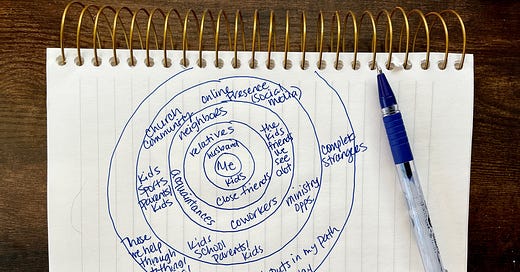 online
presence
(social
media)
Church
community
neighbors
relatives
husband
Me
kids
close friends
the
kids
friends
we
see
alot
complete
strangers
Kids
sports
parents/
kids
acquaintances
coworkers
ministry
opps.
Kids
School
Parents/
kids
Those
we help
through
puts in my path